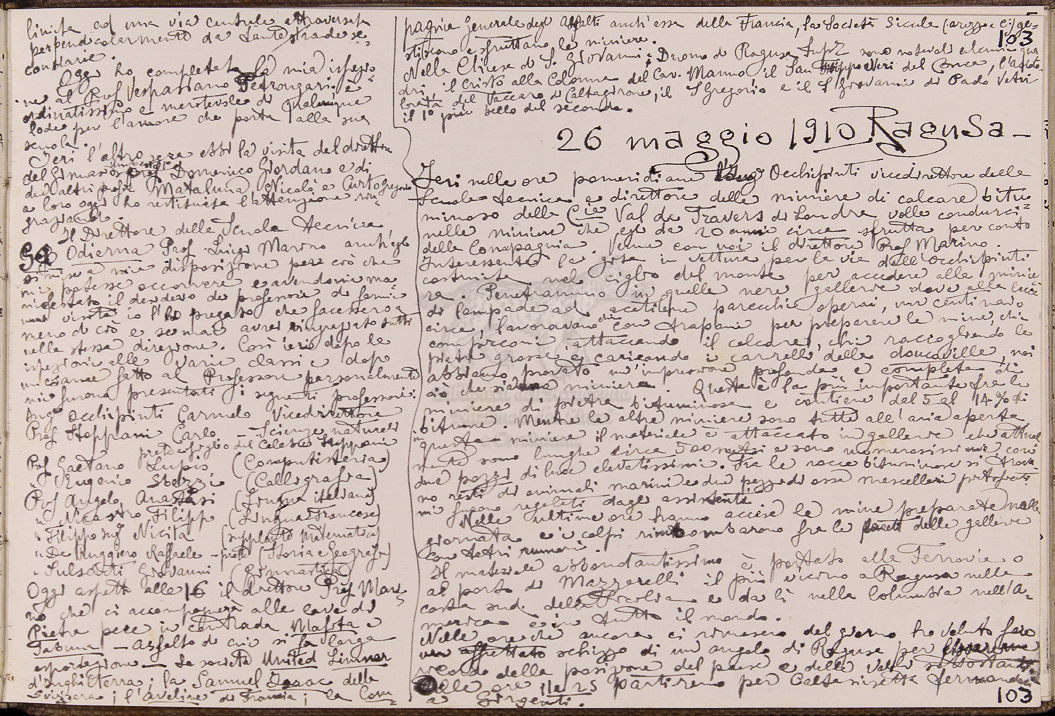 limita ad una via centrale attraversata
perpendicolarmente da tante strade se-
condarie.
Oggi ho completato la mia ispezio-
ne al Prof Vespasiano Petrongari. è
ordinatissimo e meritevole di qualunque
lode per l'amore che porta alla sua
scuola.
Ieri l'altro sera ebbi la visita del direttore
del Ginnasio Prof Domenico Giordano e di
due altri prof. Mataluna Nicola e Curto Gregorio
a loro oggi ho restituita l'attenzione rin-
graziando.
Il Direttore della Scuola Tecnica
Odierna Prof. Luigi Marino anch'egli
si mise a mia disposizione per ciò che
mi potesse occorrere e avendomi ma-
nifestato il desiderio dei professori di farmi
una visita io l'ho pregato che facessero a
meno di ciò e se mai avrei ringraziato tutti
nella stessa direzione. Così ieri dopo le
ispezioni alle varie classi e dopo
un esame fatto al Professore personalmente
mi furono presentati i seguenti professori:
Ing Occhipinti Carmelo Vicedirettore
Prof Stoppani Carlo — Scienze naturali
pronipote del Celebre Stoppani
Prof Gaetano Lupis (Computisteria)
Prof Eugenio (Calligrafia)
Prof Angelo Anastasi (Lingua italiana)
" Nicastro Filippo (Lingua francese)
" Filippo Nicita (supplente Matematica)
" De Ruggiero Raffaele — (Storia e Geografia)
" Giovanni (Ginnastica)
Oggi aspetto alle 16 il direttore Prof Mari-
no che ci accompagnerà alle cave di
Pietra pece in Contrada Mafita e
Tabuna — asfalto di cui si fa larga
esportazione — La società United Limmer
d'Inghilterra; la Samuel Isaac della
Svizzera; l'Aveline di Francia; la Com
pagnia Generale degli Asfalti anch'essa della Francia, la Società Sicula (arezzo C.i) ge-
stiscono e sfruttano le miniere.
103
Nella Chiesa di S. Giovanni; Duomo di Ragusa Supr sono notevoli alcuni qua
dri, il Cristo alla Colonna del Cav. Manno il San Filippo Neri del Conca, l'Addolo
lorata del Vaccaro di Caltagirone, il S Gregorio e il S Giovanni di Paolo Vetri
il 1o più bello del secondo.
26 maggio 1910 Ragusa —
Ieri nelle ore pomeridiane l'Ing Occhipinti vicedirettore della
Scuola tecnica e direttore delle miniere di calcare bitu
minoso della Cia Val de Travers di Londra, volle condurci
nelle miniere che egli da 20 anni circa sfrutta per conto
della Compagnia. Venne con noi il direttore Prof. Marino.
Interessante la gita in vettura per la via dall'Occhipinti
costruita nel ciglio del monte per accedere alla minie
ra. Penetrammo in quelle nere gallerie dove alla luce
di lampade ad acetilene parecchi operai, un centinaio
circa, lavoravano con trapani per preparare le mine, chi
con picconi attaccando il calcare, chi raccogliendo le
pietre grosse e caricando i carrelli della decauville, noi
abbiamo provato un'impressione profonda e completa di
ciò che sia una miniera. Questa è la più importante fra le
miniere di pietra bituminosa e contiene dal 5 al 14% di
bitume. Mentre le altre miniere sono tutte all'aria aperta
in questa miniera il materiale è attaccato in gallerie che attual
mente sono lunghe circa 500 metri e sono numerosissime con
due pozzi di luce elevatissimi. Fra le rocce bituminose si trova
no resti di animali marini e due pezzi di osse mascellari pietrificati
mi furono regalati dagli assistenti.
Nelle ultime ore hanno accese le mine preparate nella
giornata e i colpi rimbombarono fra le pareti delle gallerie
con tetri rumori.
Il materiale abbondantissimo è portato alla Ferrovia o
al porto di Mazzarelli il più vicino a Ragusa nella
costa sud della Sicilia e da lì nella Columbia nell'A-
merica e in tutto il mondo.
Nelle ore che ancora ci rimasero del giorno ho voluto fare
un affrettato schizzo di un angolo di Ragusa per
ricordo della posizione del paese e della Valle sottostante
Alle ore 11 e 25 partiremo per Caltanissetta fermandoci
a Girgenti.
103